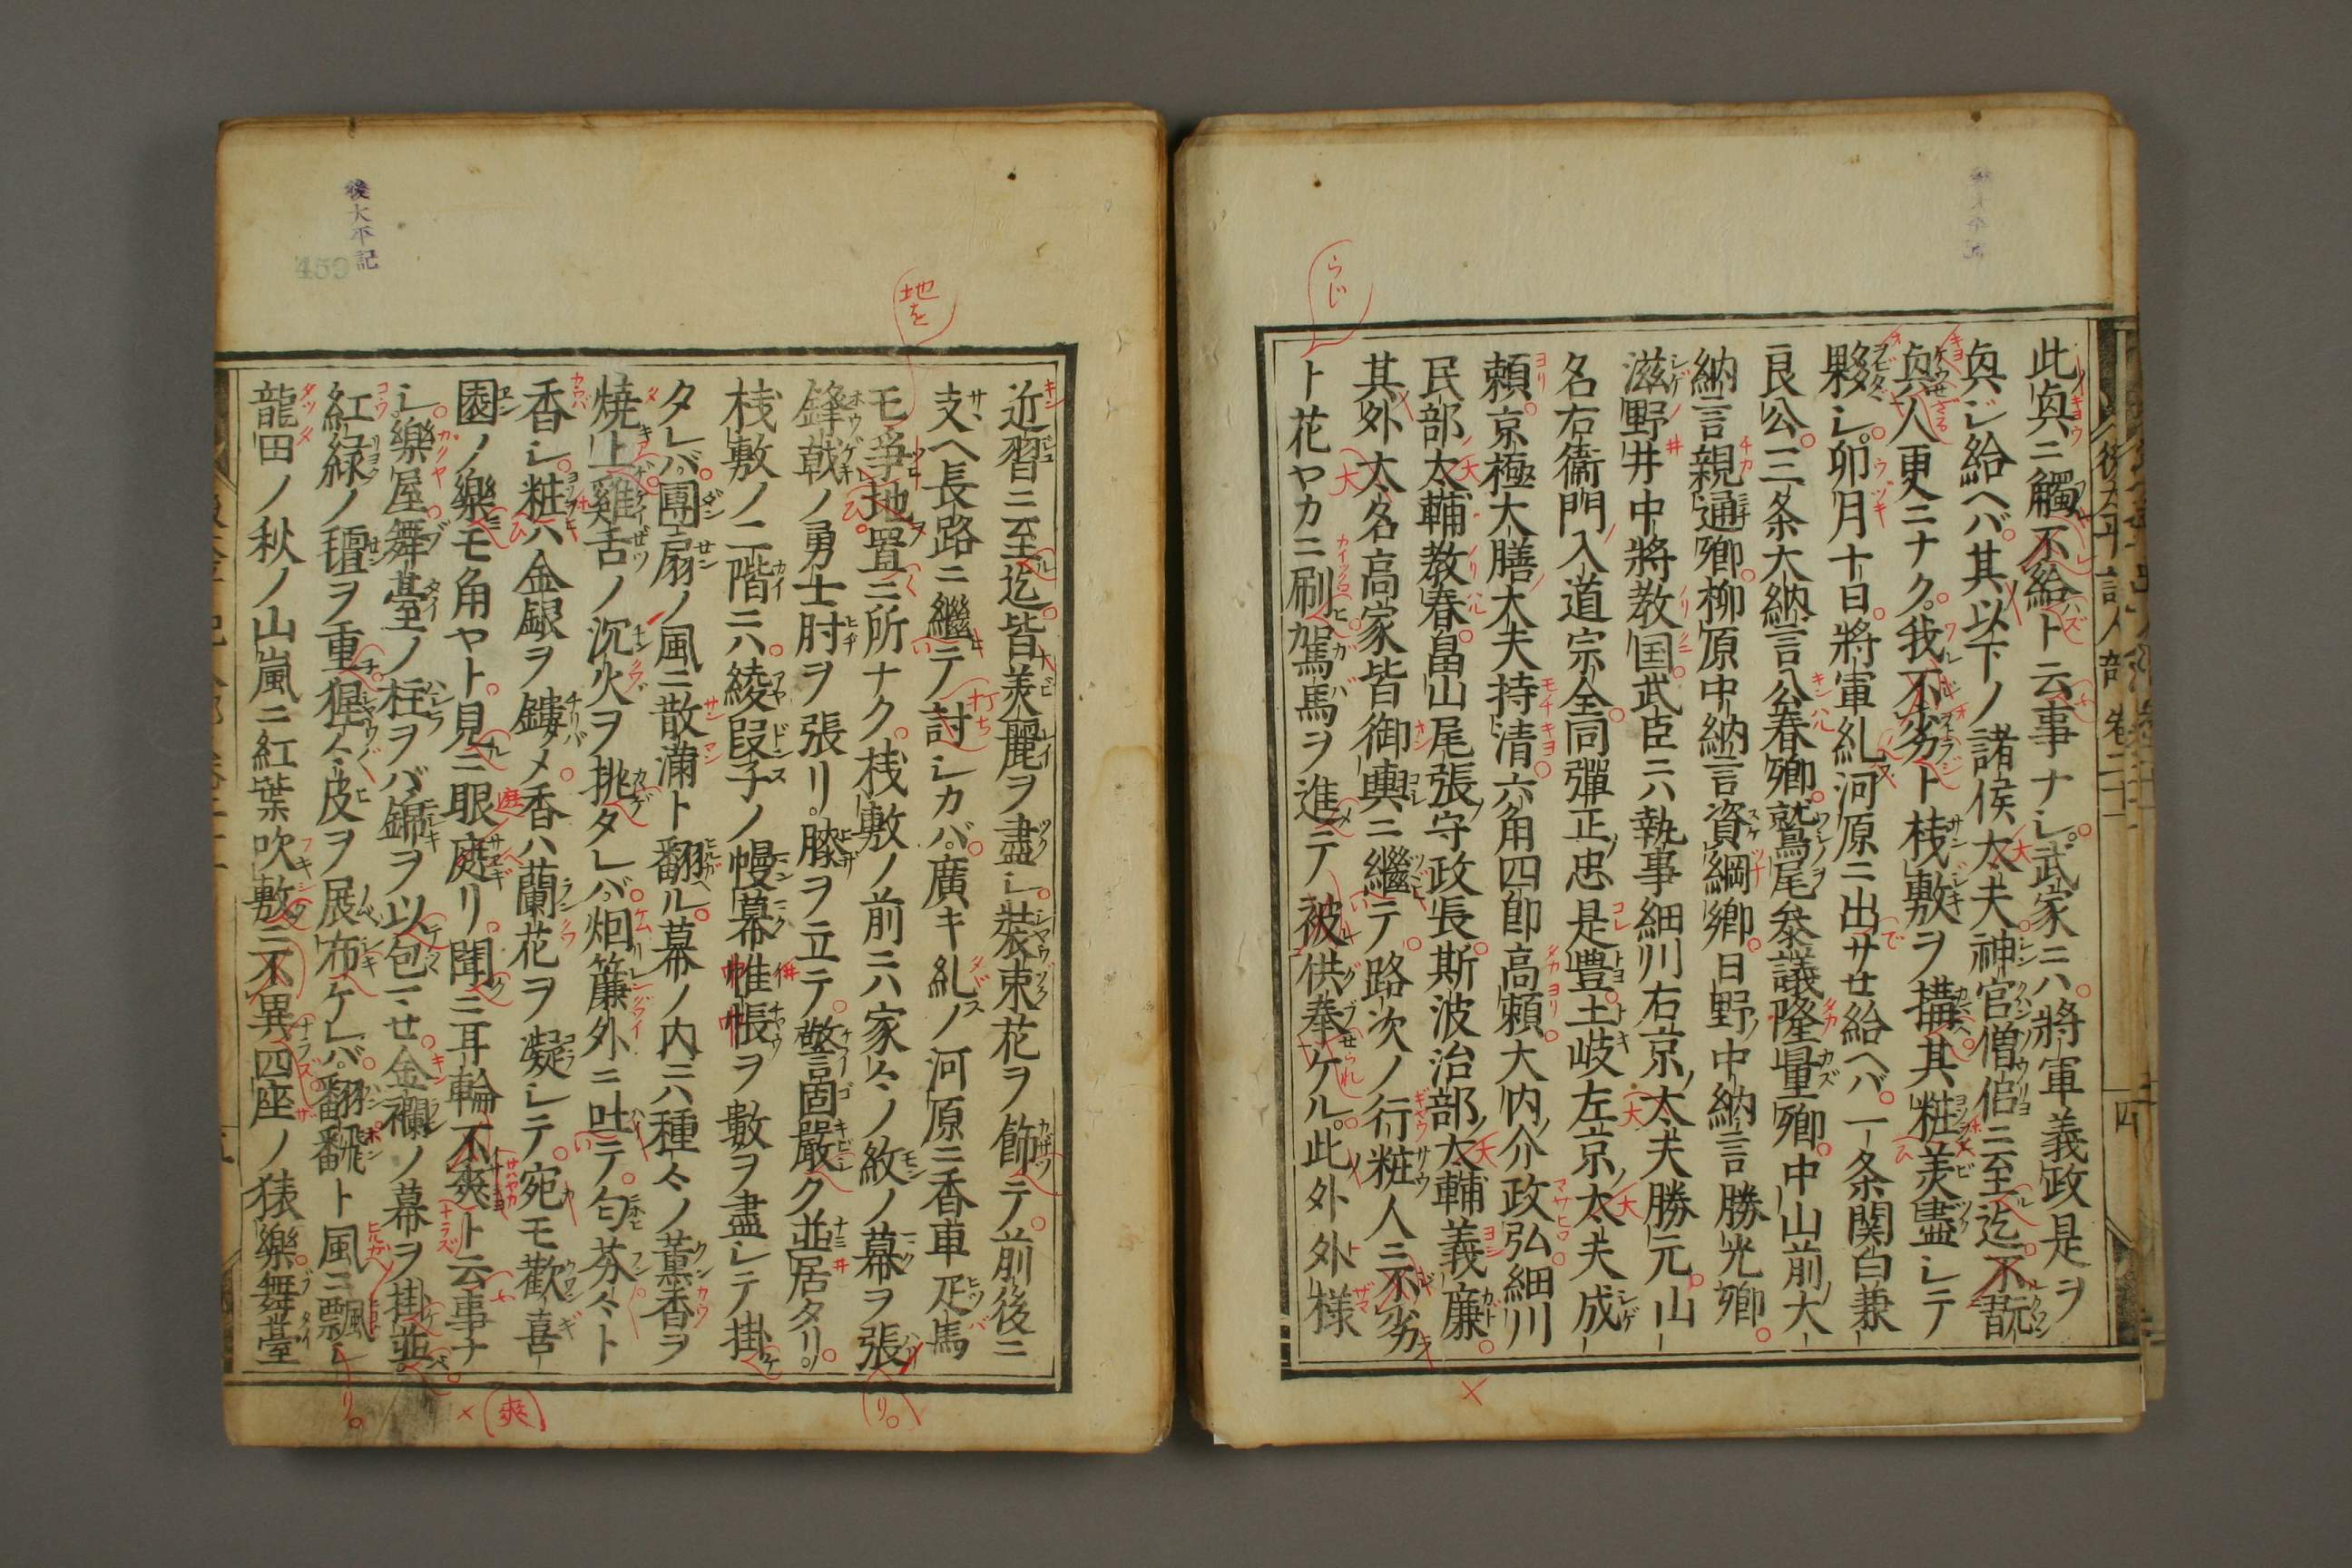 此㒵ニ觸不給ト云事ナシ武家ニハ將軍義政是ヲ
㒵ジ給ヘバ其以下ノ諸侯太夫神官僧侶ニ至迄不翫
㒵人更ニナク我不劣ト棧敷ヲ構其粧美盡シテ
夥シ卯月十日將軍糺河原ニ出サセ給ヘバ一条関白兼
良公三条大納言公春卿鷲尾参議隆量卿中山前大
納言親通卿柳原中納言資綱卿日野中納言勝光卿
滋野井中將教国武臣ニハ執事細川右京太夫勝元山
名右衞門入道宗全同彈正忠是豊土岐左京太夫成
頼京極大膳太夫持清六角四郎高頼大内介政弘細川
民部太輔教春畠山尾張守政長斯波治部太輔義廉
其外太名高家皆御輿ニ繼テ路次ノ行粧人ニ不劣
ト花ヤカニ刷駕馬ヲ進テ被供奉ケル此外外様
近習ニ至迄皆美麗ヲ盡シ裝束花ヲ飾テ前後ニ
支ヘ長路ニ繼テ討シカバ廣キ糺ノ河原ニ香車疋馬
モ爭地置ニ所ナク棧敷ノ前ニハ家々ノ紋ノ幕ヲ張
鋒戟ノ勇士肘ヲ張リ膝ヲ立テ警固嚴ク並居タリ
棧敷ノ二階ニハ綾段子ノ幔幕帷帳ヲ數ヲ盡シテ掛
タレバ團扇ノ風ニ散滿ト翻ル幕ノ内ニハ種々ノ薫香ヲ
焼上雞舌ノ沉火ヲ挑タレバ烟簾外ニ吐テ匂芬々ト
香シ粧ハ金銀ヲ鏤メ香ハ蘭花ヲ凝シテ宛モ歡喜
園ノ樂モ角ヤト見ニ眼庭リ聞ニ耳輪不爽ト云事ナ
シ樂屋舞臺ノ柱ヲバ錦ヲ以包マセ金襴ノ幕ヲ掛並
紅緑ノ氊ヲ重猩々皮ヲ展布ケレバ翻翻ト風ニ飄シ
龍田ノ秋ノ山嵐ニ紅葉吹敷ニ不異四座ノ猿樂舞臺
後太平記
459